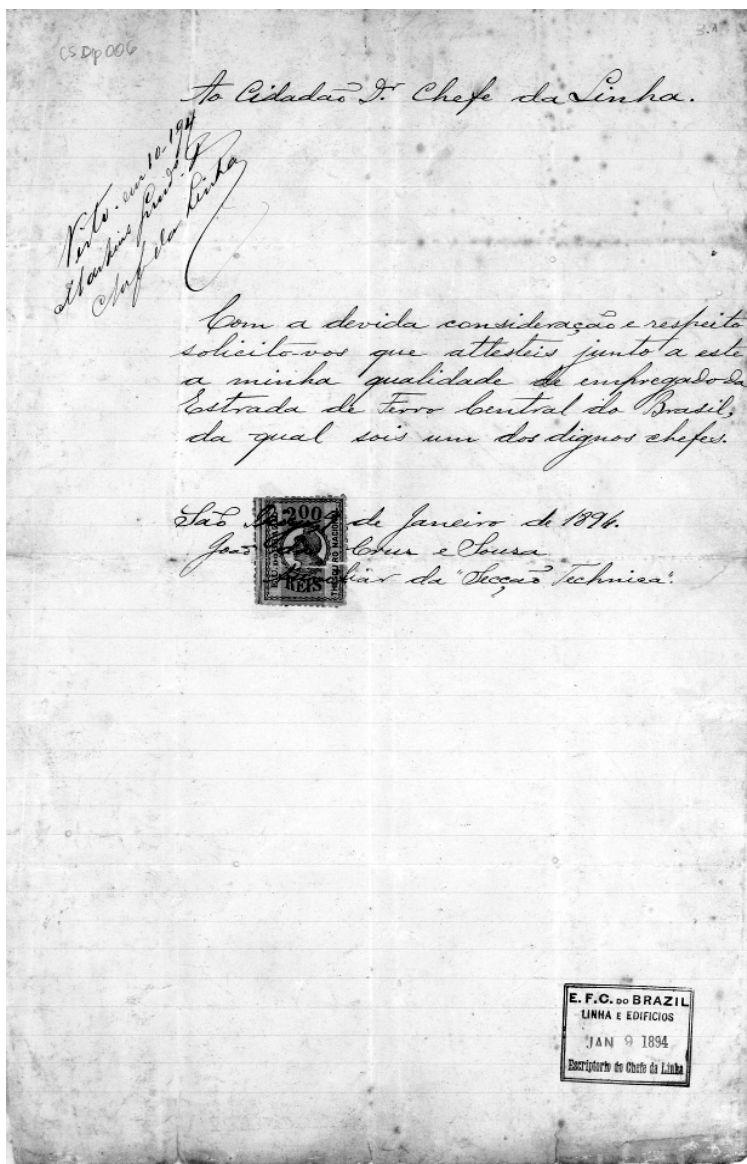 CSDp006
Ao Cidadão Dr. Chefe da Linha.
Visto em 10-1-94
Chefe da Linha
Com a devida consideração e respeito
solicito-vos que attesteis junto a este
a minha qualidade de empregado da
Estrada de Ferro Central do Brasil,
da qual sois um dos dignos chefes.
São 9 de Janeiro de 1894.
João Cruz e Sousa
Auxiliar da "Secção Technica".
200
REIS
THESOURO NACIONAL
E. F. C. DO BRAZIL
LINHA E EDIFICIOS
JAN 9 1894
Escriptorio do Chefe da Linha